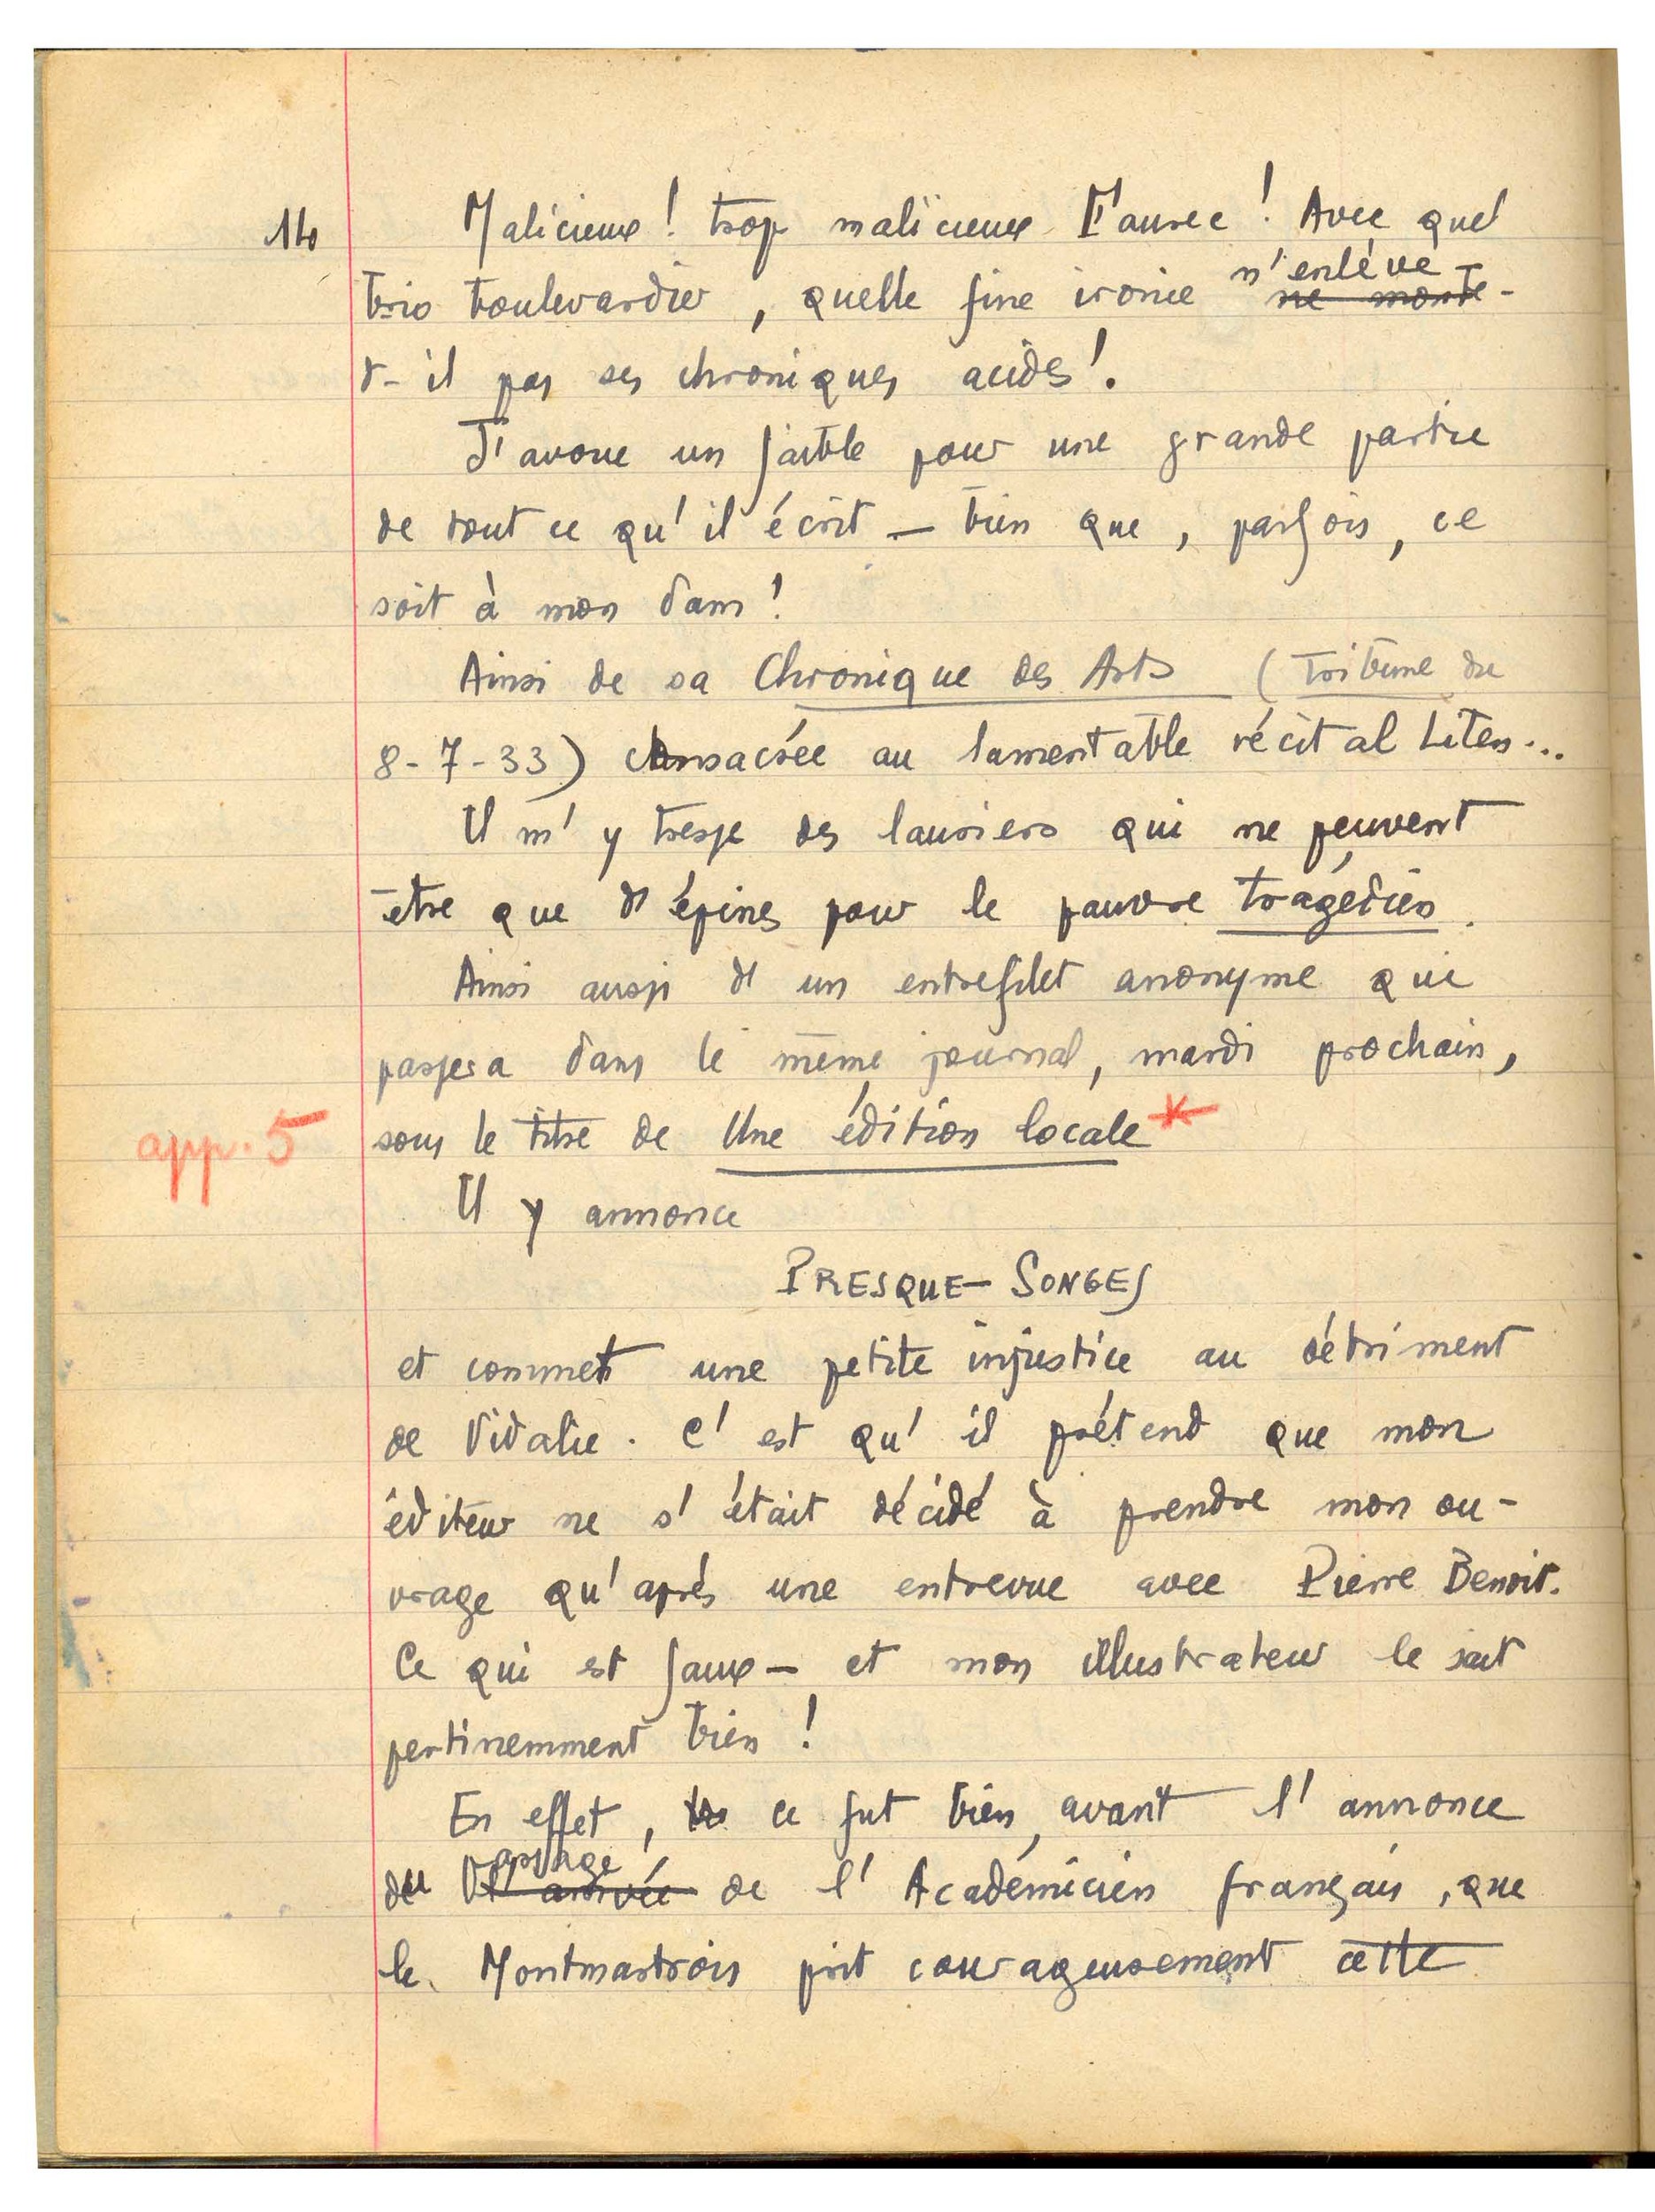 14
Malicieux ! trop malicieux Fauree ! Avec quel
brio boulevardier, quelle fine ironie n'enlève-
ne monte-
t-il pas ses chroniques acides !
J'avoue un faible pour une grande partie
de tout ce qu'il écrit – bien que, parfois, ce
soit à mon dam !
Ainsi de sa Chronique des Arts (Tribune du
8-7-33) consacrée au lamentable récital Liten...
Il m'y tresse des lauriers qui ne peuvent
être que d'épines pour le pauvre tragédien.
Ainsi aussi d'un entrefilet anonyme qui
passera dans le même journal, mardi prochain,
app. 5
sous le titre de Une édition locale *
Il y annonce
PRESQUE-SONGES
et commet une petite injustice au détriment
de Vidalie. C'est qu'il prétend que mon
éditeur ne s'était décidé à prendre mon ou-
vrage qu'après une entrevue avec Pierre Benoit.
Ce qui est faux – et mon illustrateur le sait
pertinemment bien !
En effet, ce fut bien avant l'annonce
du passage de l'Académicien français, que
l'arrivée
le Montmartrois prit courageusement cette